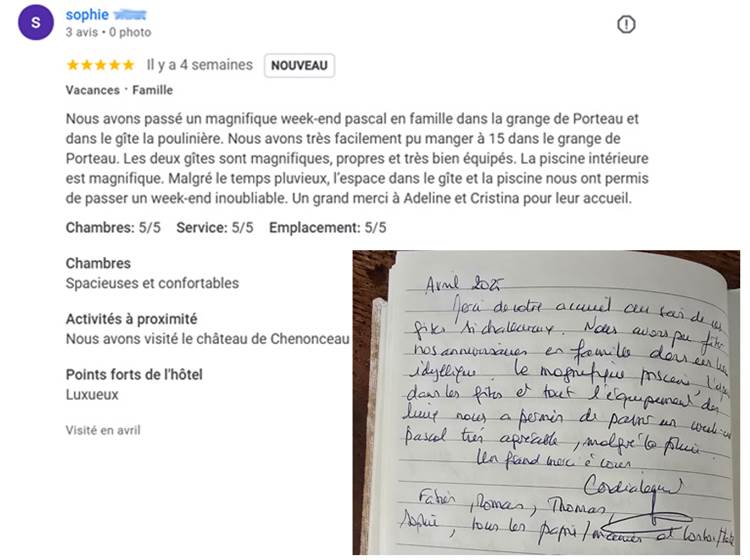 S
sophie
3 avis • 0 photo
★★★★★ Il y a 4 semaines NOUVEAU
Vacances · Famille
Nous avons passé un magnifique week-end pascal en famille dans la grange de Porteau et
dans le gîte la poulinière. Nous avons très facilement pu manger à 15 dans le grange de
Porteau. Les deux gîtes sont magnifiques, propres et très bien équipés. La piscine intérieure
est magnifique. Malgré le temps pluvieux, l'espace dans le gîte et la piscine nous ont permis
de passer un week-end inoubliable. Un grand merci à Adeline et Cristina pour leur accueil.
Chambres: 5/5 Service: 5/5 Emplacement: 5/5
Chambres
Spacieuses et confortables
Activités à proximité
Nous avons visité le château de Chenonceau
Points forts de l'hôtel
Luxueux
Visité en avril
Avril 2025
Merci de votre accueil au sein de ces
gîtes si chaleureux. Nous avons pu fêter
nos anniversaires en famille dans ces lieux
idyllique. Le magnifique piscine, l'espace
dans les gîtes et tout l'équipement des
lieux nous a permis de passer un week-end
pascal très agréable, malgré la pluie.
Un grand merci à vous
Cordialement
Roman, Thomas,
Sophie, tous les papis/mamies et tontons/